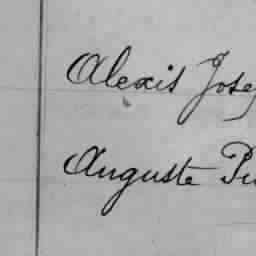 Alexis Jose
Auguste